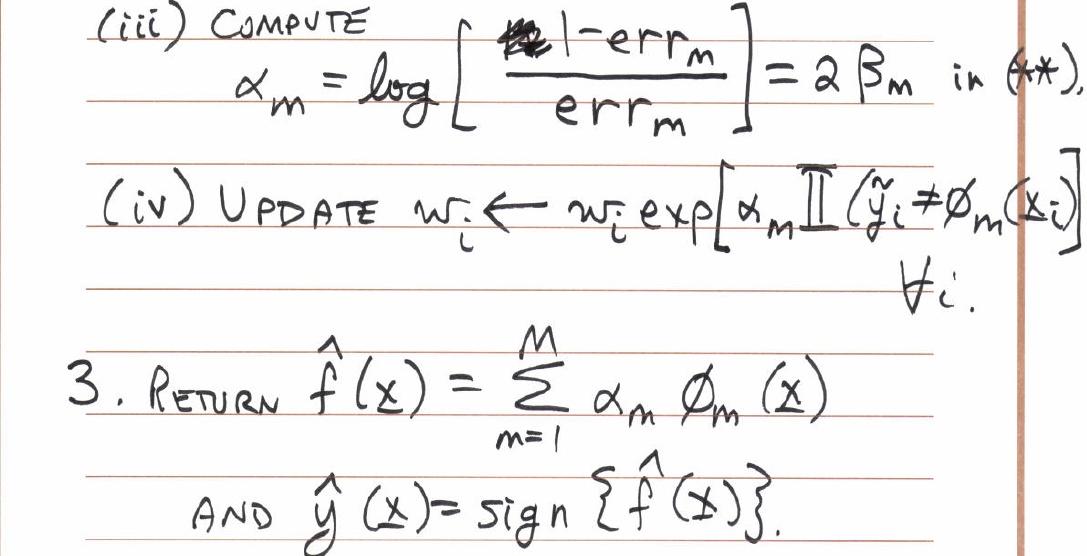 (iii) COMPUTE
α_m = log[ (1-err_m) / err_m ] = 2 β_m in (**).
(iv) UPDATE w_i ← w_i exp[α_m 𝕀(ỹ_i ≠ ø_m(x̲_i)]
∀i.
3. RETURN f̂(x̲) = Σ_{m=1}^{M} α_m ø_m (x̲)
AND ŷ(x̲) = sign {f̂(x̲)}.